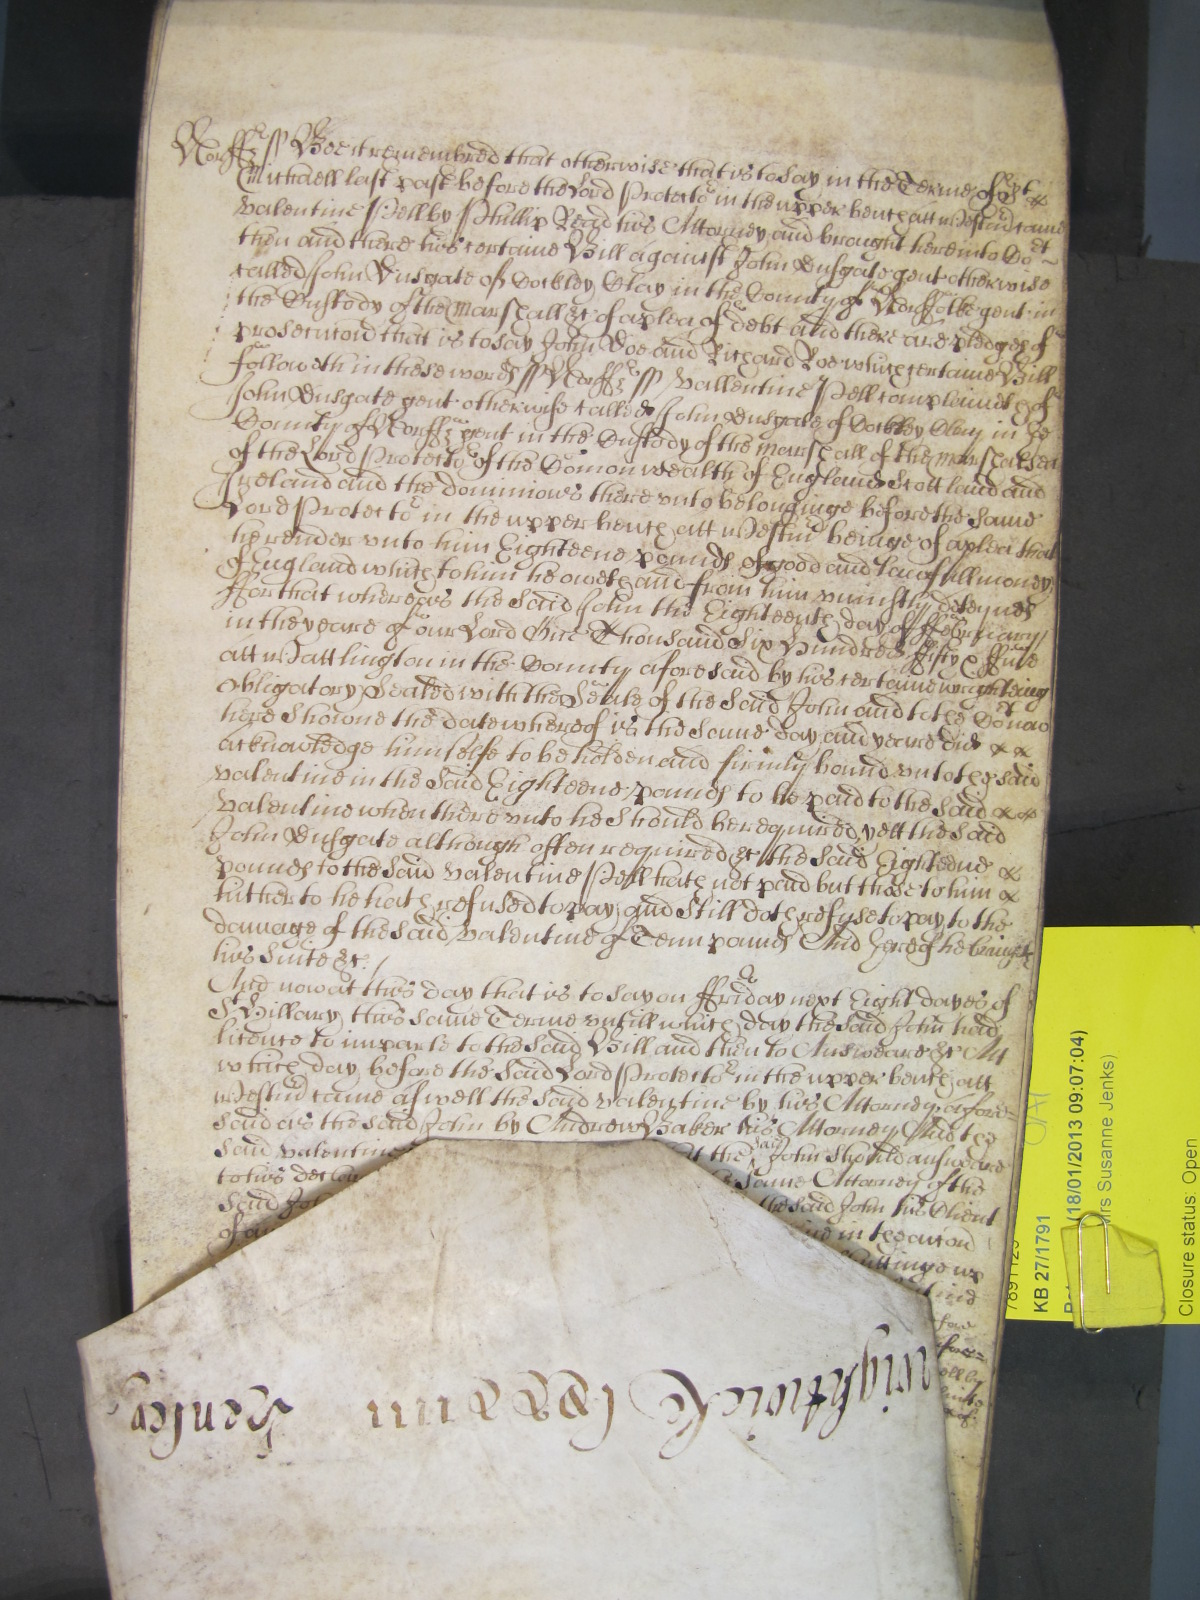 Norff ss Bee it remembred that otherwise that is to say in the Terme of St
Michaell last past before the Lord Protector in the upper bench att Westmr came
Valentine Pell by Phillip Read his Attorney and brought here into Co~rt
then and there his certaine Bill against John Dusgate gent otherwise
called John Dusgate of Cockley Clay in the County of Norffolke gent in
the Custody of the Marshall &c of a plea of debt and there are pledges of
prosecucion that is to say John Doe and Richard Roe which certaine Bill
followeth in these words ss Norff ss Vallentine Pell complaines of
John Dusgate gent otherwise called John Dusgate of Cockley Clay in the
County of Norff gent in the Custody of the Marshall of the Marshalsea
of the Lord Protector of the Comonwealth of England Scotland and
Ireland and the dominions thereunto belonginge before the same
Lord Protector in the upper bench att Westmr beinge of a plea that
he render unto him Eighteene pounds of good and lawfull money
of England which to him he oweth and from him uniustly deteynes
ffor that whereas the said John the Eighteenth day of ffebruary
in the yeare of our Lord One Thousand Six Hundred ffifty & ffive
att Wattlington in the County aforesaid by his certaine writeing
obligatory Sealed with the Seale of the said John and to the Co~rt now
here showne the date whereof is the same day and yeare did
acknowledge himselfe to be holden and firmly bound unto the said
Valentine in the said Eighteene pounds to be paid to the said
Valentine when thereunto he should be required yett the said
John Dusgate although often required &c the said Eighteene
pounds to the said Valentine Pell hath not paid but those to him
hitherto he hath refused to pay and still doth refuse to pay to the
damage of the said Valentine of Tenn pounds And hereof he bringeth
his Suite &c
And now at this day that is to say on ffriday next Eight dayes of
St Hillary this same Terme untill which day the said John had
licence to imparle to the said Bill and then to Answeare &c Att
which day before the said Lord Protector in the upper bench att
Westmr came aswell the said Valentine by his Attorney afore-
said as the said John by Andrew Baker his Attorney And the
said Valentine the said John should answeare
to his same Attorney of the
said the said John his Client
of in the accion
KB 27/1791
(18/01/2013 09:07:04)
Mrs Susanne Jenks)
Closure status: Open